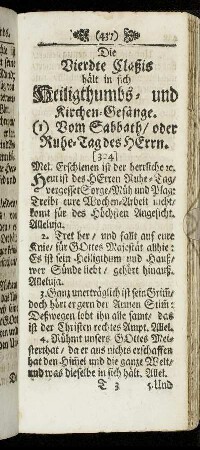 (437)
Die
Vierdte Claßis
hält in sich
Heiligthumbs- und
Kirchen-Gesänge.
(1) Vom Sabbath/ oder
Ruhe-Tag des HErrn.
[324]
Mel. Erschienen ist der herrliche ꝛc.
Heut ist des HErren Ruhe-Tag/
vergesset Sorge/Müh und Plag:
Treibt eure Wochen-Arbeit nicht/
komt für des Höchsten Angesicht.
Alleluja.
2. Tret her/ und fallt auf eure
Knie/ für GOttes Majestät allhie:
Es ist sein Heiligthum und Hauß/
wer Sünde liebt/ gehört hinauß.
Alleluja.
3. Ganz unerträglich ist sein Grim̃/
doch hört er gern der Armen Stim̃:
Deßwegen lobt ihn alle samt/ das
ist der Christen rechtes Ampt. Allel.
4. Rühmt unsers GOttes Mei-
sterthat/ da er aus nichts erschaffen
hat den Him̃el und die ganze Welt/
und was dieselbe in sich hält. Allel.
T 3 5. Und